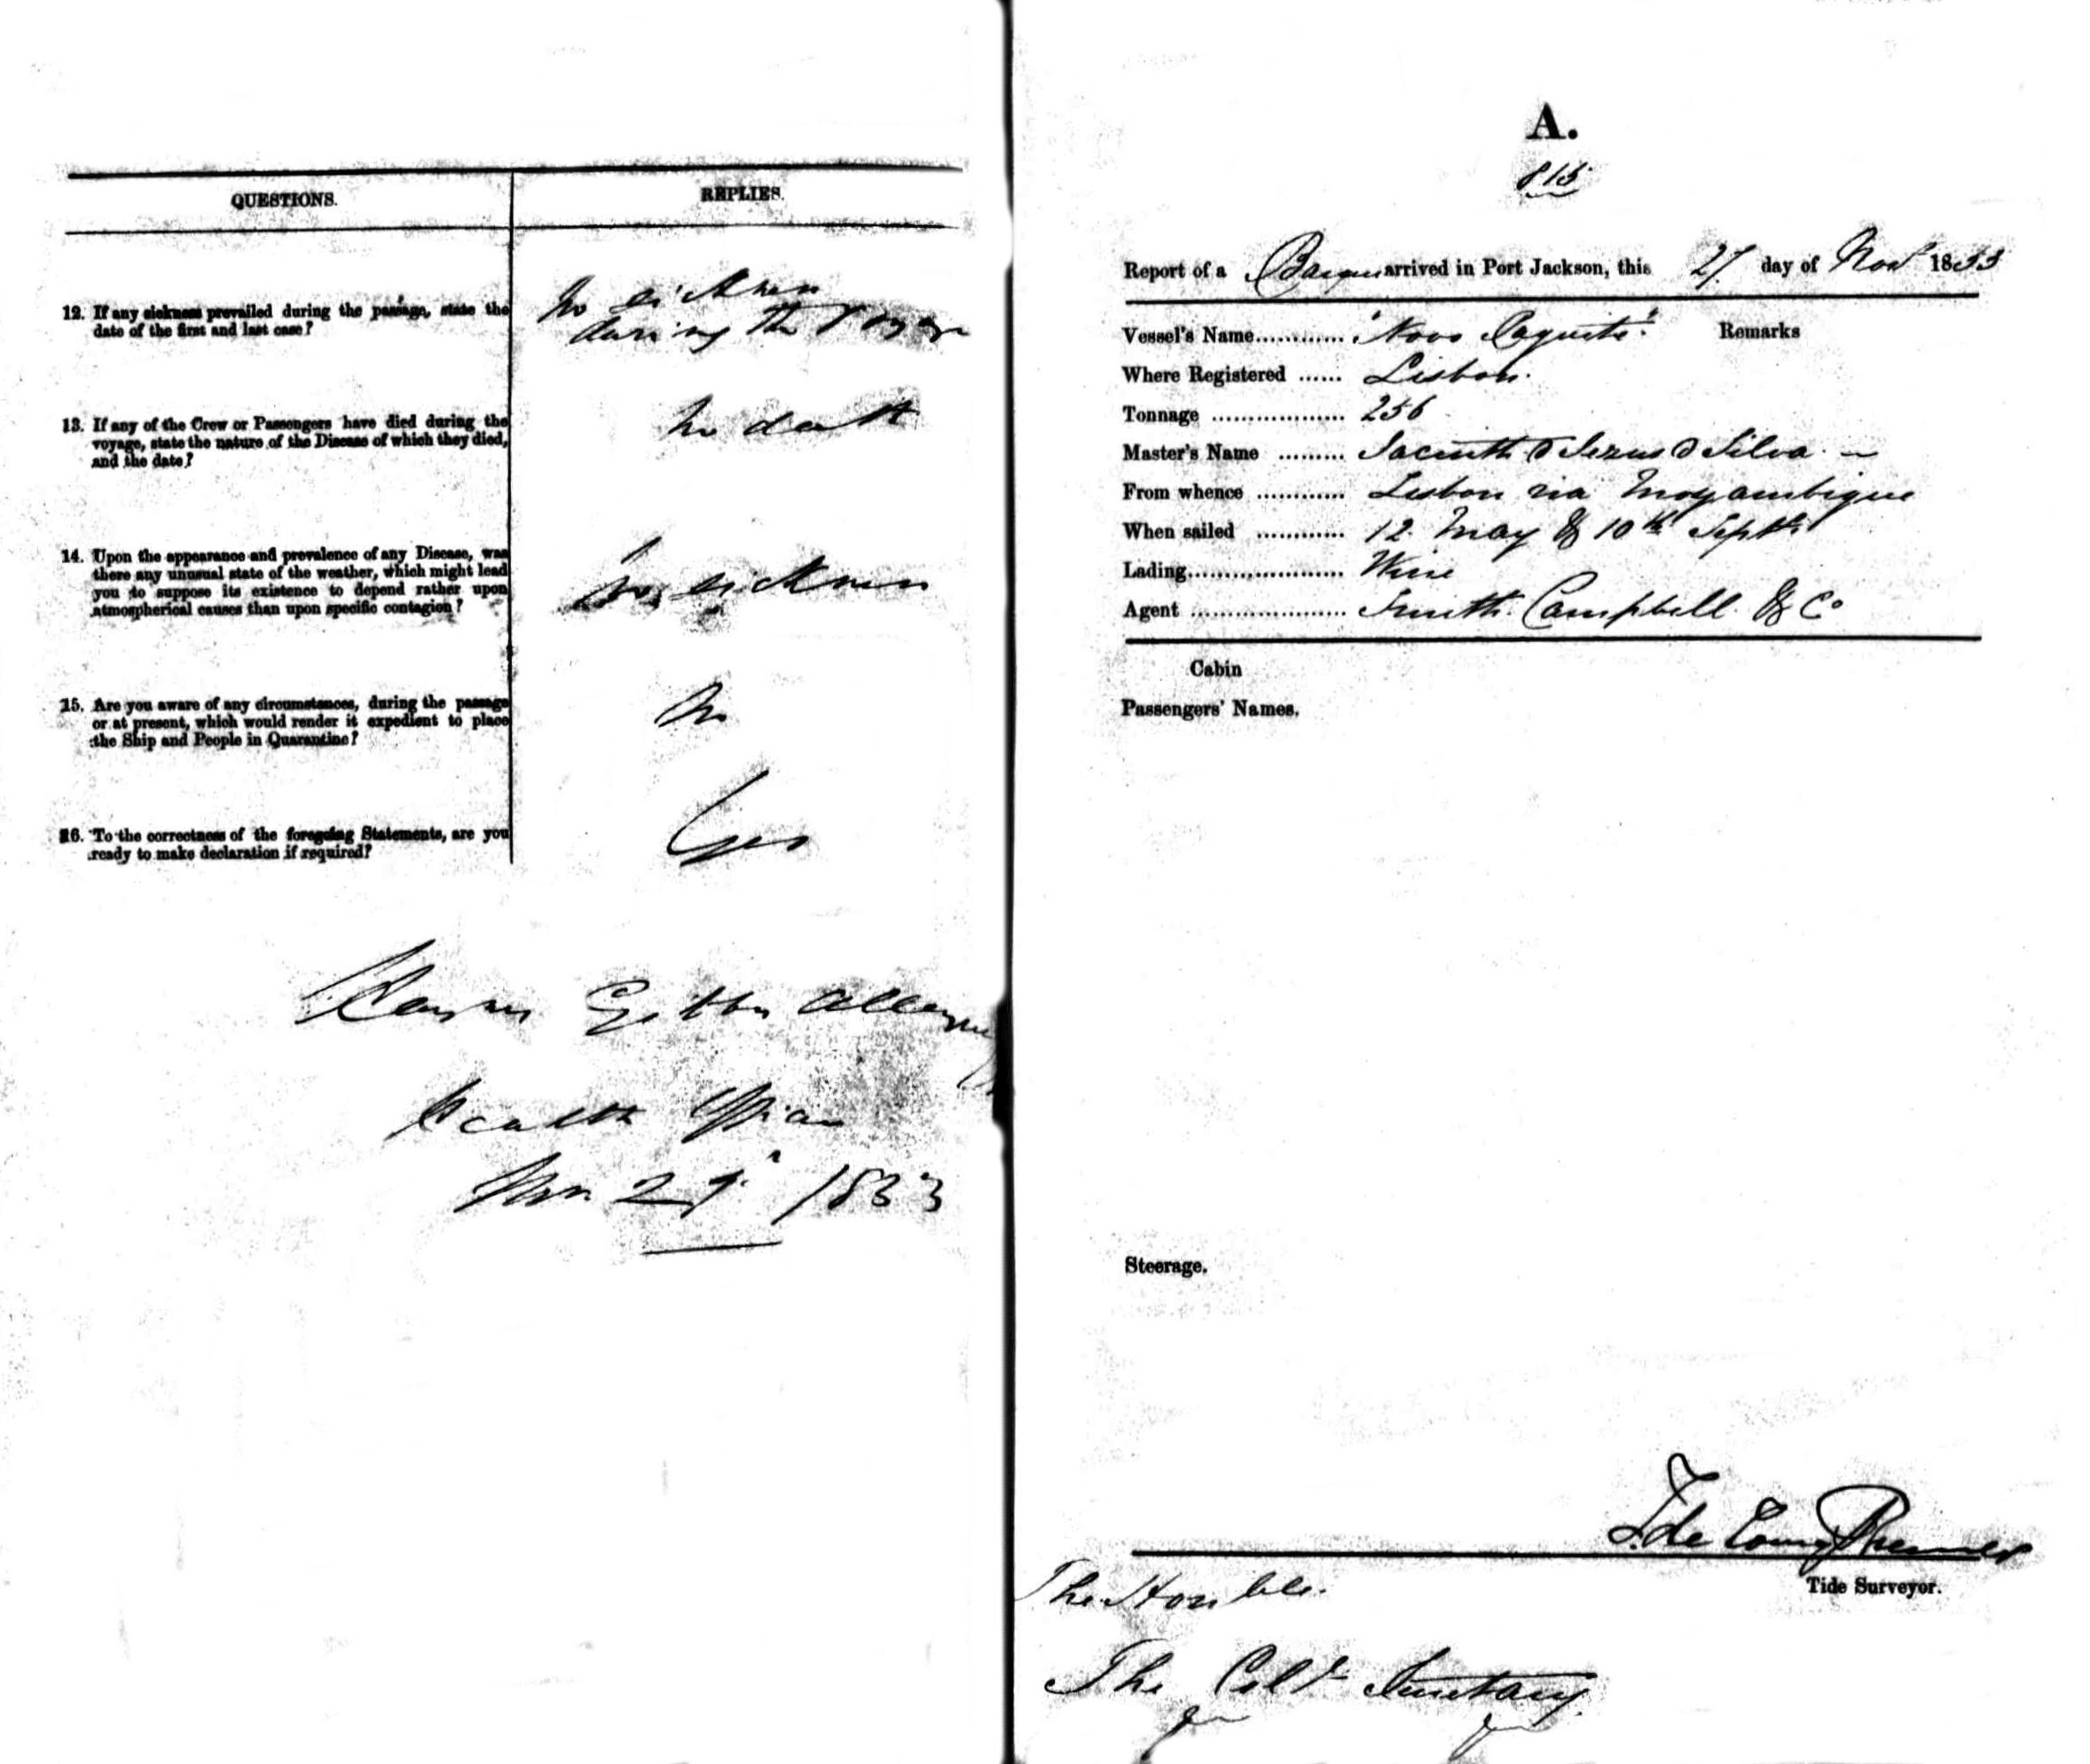 QUESTIONS.
REPLIES.
12. If any sickness prevailed during the passage, state the
date of the first and last case?
No sickness
during the Voyage
13. If any of the Crew or Passengers have died during the
voyage, state the nature of the Disease of which they died,
and the date?
No death
14. Upon the appearance and prevalence of any Disease, was
there any unusual state of the weather, which might lead
you to suppose its existence to depend rather upon
atmospherical causes than upon specific contagion?
No sickness
15. Are you aware of any circumstances, during the passage
or at present, which would render it expedient to place
the Ship and People in Quarantine?
No
16. To the correctness of the foregoing Statements, are you
ready to make declaration if required?
Yes
Health Officer
Nov 27. 1853
A.
815
Report of a Barque arrived in Port Jackson, this 27 day of Novr 1853
Vessel's Name............ "Novo Paquete" Remarks
Where Registered ...... Lisbon.
Tonnage .................. 256
Master's Name ......... Jacinth d Jezus d Silva. —
From whence ............ Lisbon via Mozambique
When sailed ............ 12. May & 10th Septr
Lading..................... Wine
Agent ..................... Smith. Campbell. & Co
Cabin
Passengers' Names.
Steerage.
Tide Surveyor.
The Honble.
The Coll Secretary.